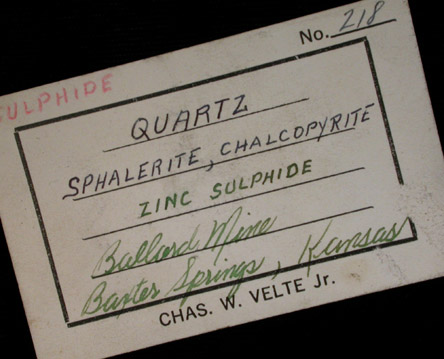 No. 218
SULPHIDE
QUARTZ
SPHALERITE, CHALCOPYRITE
ZINC SULPHIDE
Ballard Mine
Baxter Springs, Kansas
CHAS. W. VELTE Jr.